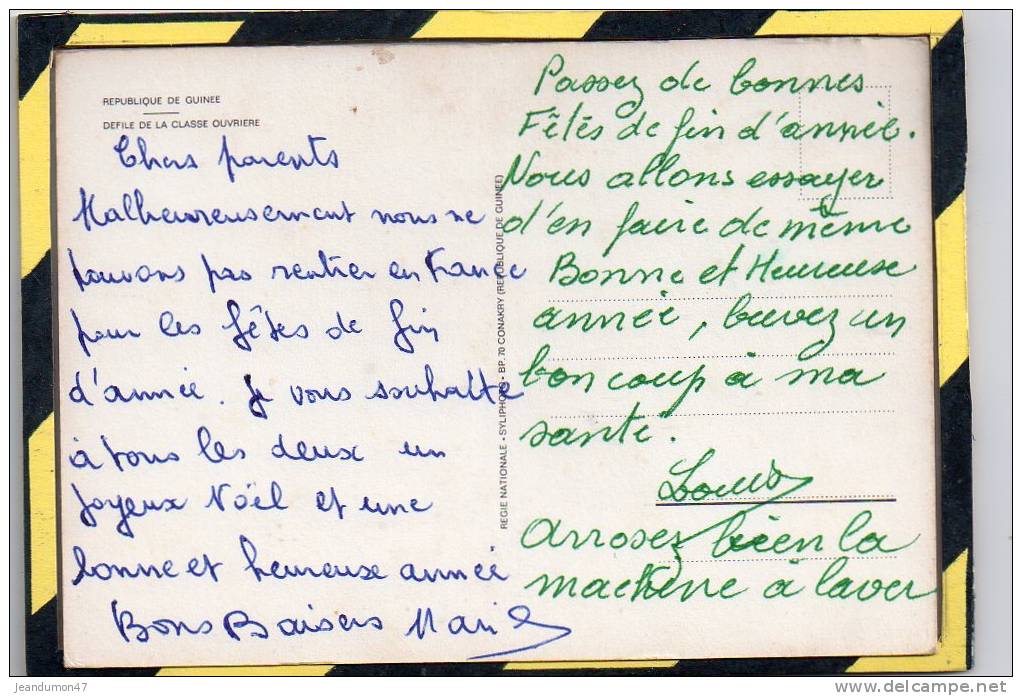 REPUBLIQUE DE GUINEE
DEFILE DE LA CLASSE OUVRIERE
Chers parents
Malheureusement nous ne
pouvons pas rentrer en France
pour les fêtes de fin
d'année. Je vous souhaite
à tous les deux un
Joyeux Noël et une
bonne et heureuse année
Bons Baisers Marie
REGIE NATIONALE - SYLIPHOTO - BP. 70 CONAKRY (REPUBLIQUE DE GUINEE)
Passez de bonnes
Fêtés de fin d'année.
Nous allons essayer
d'en faire de même
Bonne et Heureuse
année, buvez un
bon coup à ma
santé.
Louis
Arrosez bien la
machine à laver
jeandumon47
delcampe.net